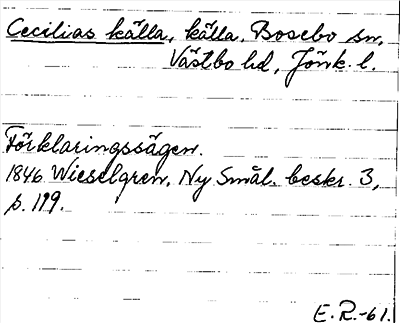 Cecilias källa, källa, Bosebo sn,
Västbo hd, Jönk. l.
Förklaringssägen.
1846 Wieselgren, Ny Smål. beskr. 3,
s. 119.
E. R.-61.